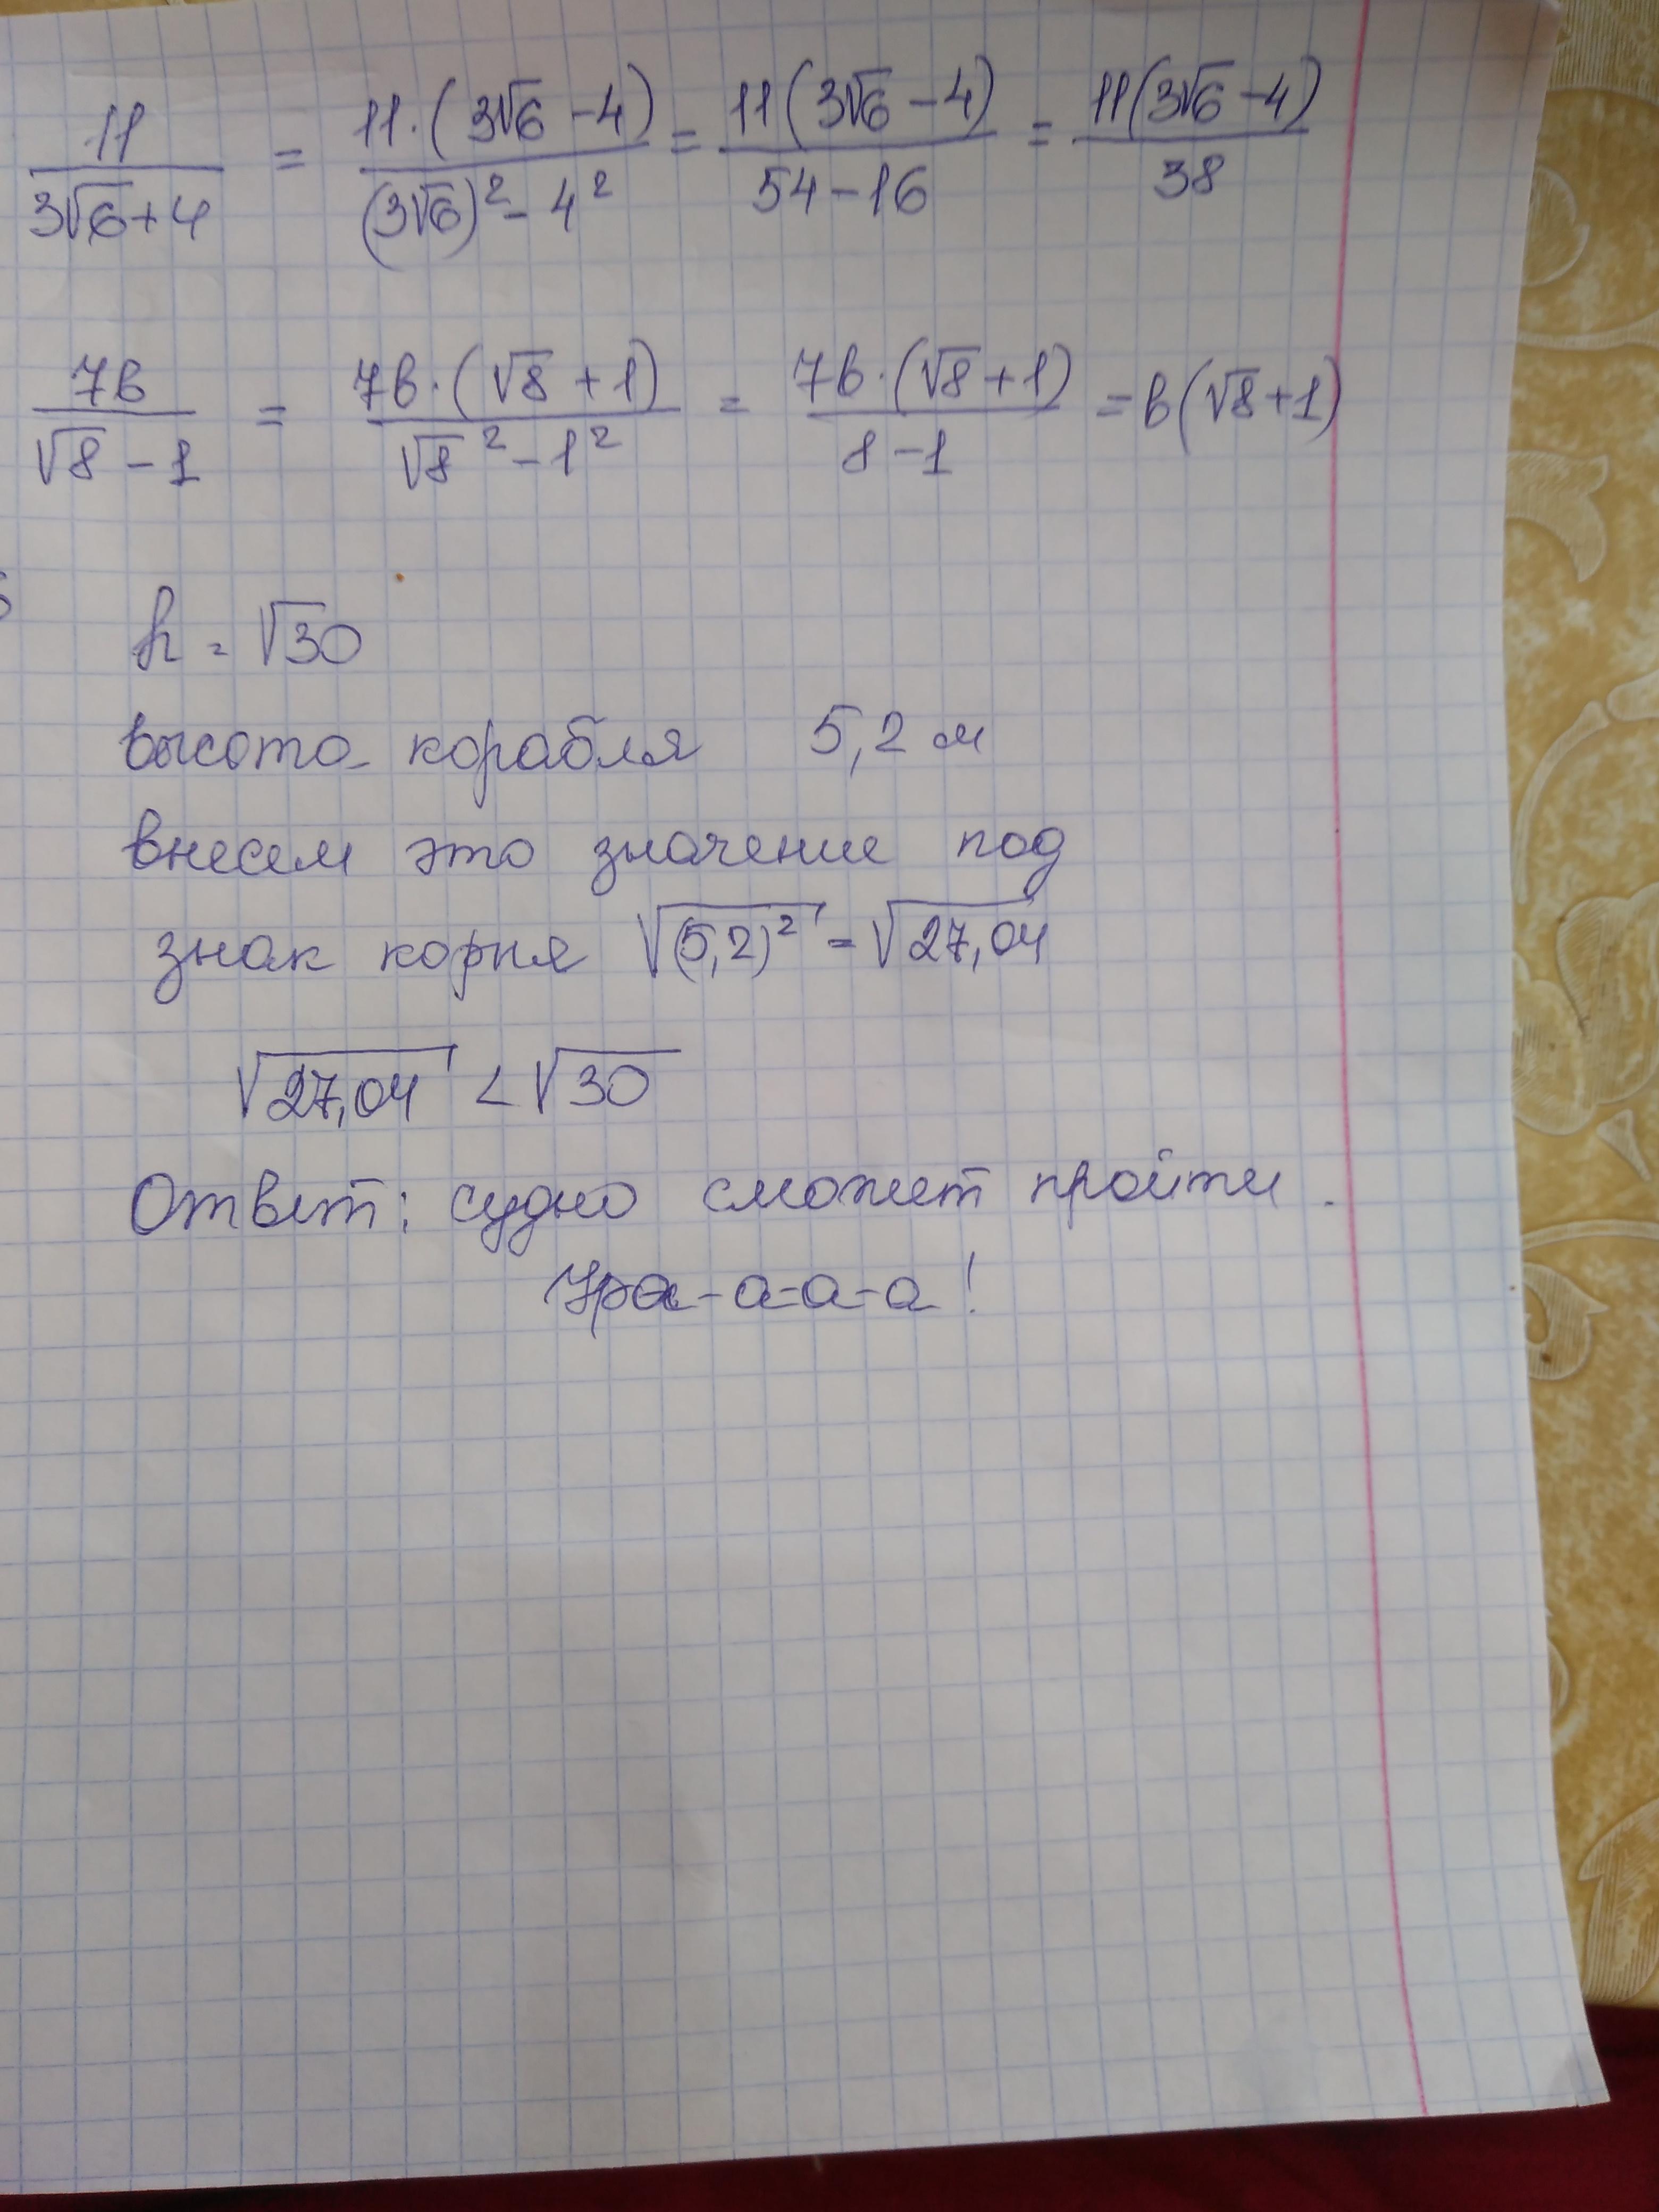 11/(3√6+4) = 11·(3√6-4)/((3√6)²-4²) = 11(3√6-4)/(54-16) = 11(3√6-4)/38
7в/(√8-1) = 7в·(√8+1)/(√8²-1²) = 7в·(√8+1)/(8-1) = в(√8+1)
h = √30
высота корабля 5,2 м
внесем это значение под
знак корня √(5,2)² = √27,04
√27,04 < √30
Ответ: судно сможет пройти.
Ура-а-а-а!